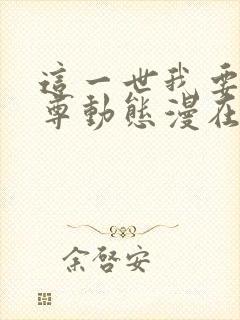 這一世我要
尊動態漫在
余啓安